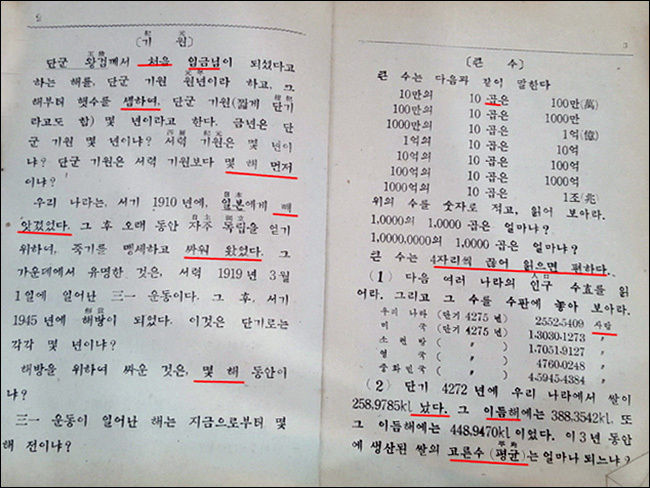 2
[기 원]
紀 元
단군 왕검께서 처음 임금님이 되셨다고
王儉
하는 해를, 단군 기원 원년이라 하고, 그
元年
해부터 햇수를 셈하여, 단군 기원 (짧게 단기
檀紀
라고도 함) 몇 년이라고 한다. 금년은 단
군 기원 몇 년이냐? 서력 기원은 몇 년이
西曆 紀元
냐? 단군 기원은 서력 기원보다 몇 해 먼저
이냐?
우리 나라는, 서기 1910 년에, 일본에게 빼
日本
앗겼었다. 그 후 오래 동안 자주 독립을 얻기
自主 獨立
위하여, 죽기를 맹세하고 싸워 왔었다. 그
가운데에서 유명한 것은, 서력 1919 년 3월
1일에 일어난 三一 운동이다. 그 후, 서기
1945 년에 해방이 되었다. 이것은 단기로는
解放
각각 몇 년이냐?
해방을 위하여 싸운 것은, 몇 해 동안이
냐?
三一 운동이 일어난 해는 지금으로부터 몇
해 전이냐?
3
[큰 수]
큰 수는 다음과 같이 말한다
10만의 10 곱은 100만(萬)
100만의 10 곱은 1000만
1000만의 10 곱은 1억(億)
1억의 10 곱은 10억
10억의 10 곱은 100억
100억의 10 곱은 1000억
1000억의 10 곱은 1조(兆)
위의 수를 숫자로 적고, 읽어 보아라.
1,0000의 1,0000 곱은 얼마냐?
1,0000,0000의 1,0000 곱은 얼마냐?
큰 수는 4자리씩 끊어 읽으면 편하다.
(1) 다음 여러 나라의 인구 수효를 읽
人口
어라. 그리고 그 수를 수판에 놓아 보아라.
우리 나라 (단기 4275 년) 2552,5409 사람
미 국 (단기 4275 년) 1,3030,1273 〃
소 련 방 ( 〃 ) 1,7051,9127 〃
영 국 ( 〃 ) 4760,0248 〃
중화민국 ( 〃 ) 4,5945,4384 〃
(2) 단기 4272 년에 우리 나라에서 쌀이
258,9785kl 났다. 그 이듬해에는 388,3542kl, 또
그 이듬해에는 448,9470kl 이었다. 이 3 년 동안
에 생산된 쌀의 고른수 (평균)는 얼마나 되느냐?
平均